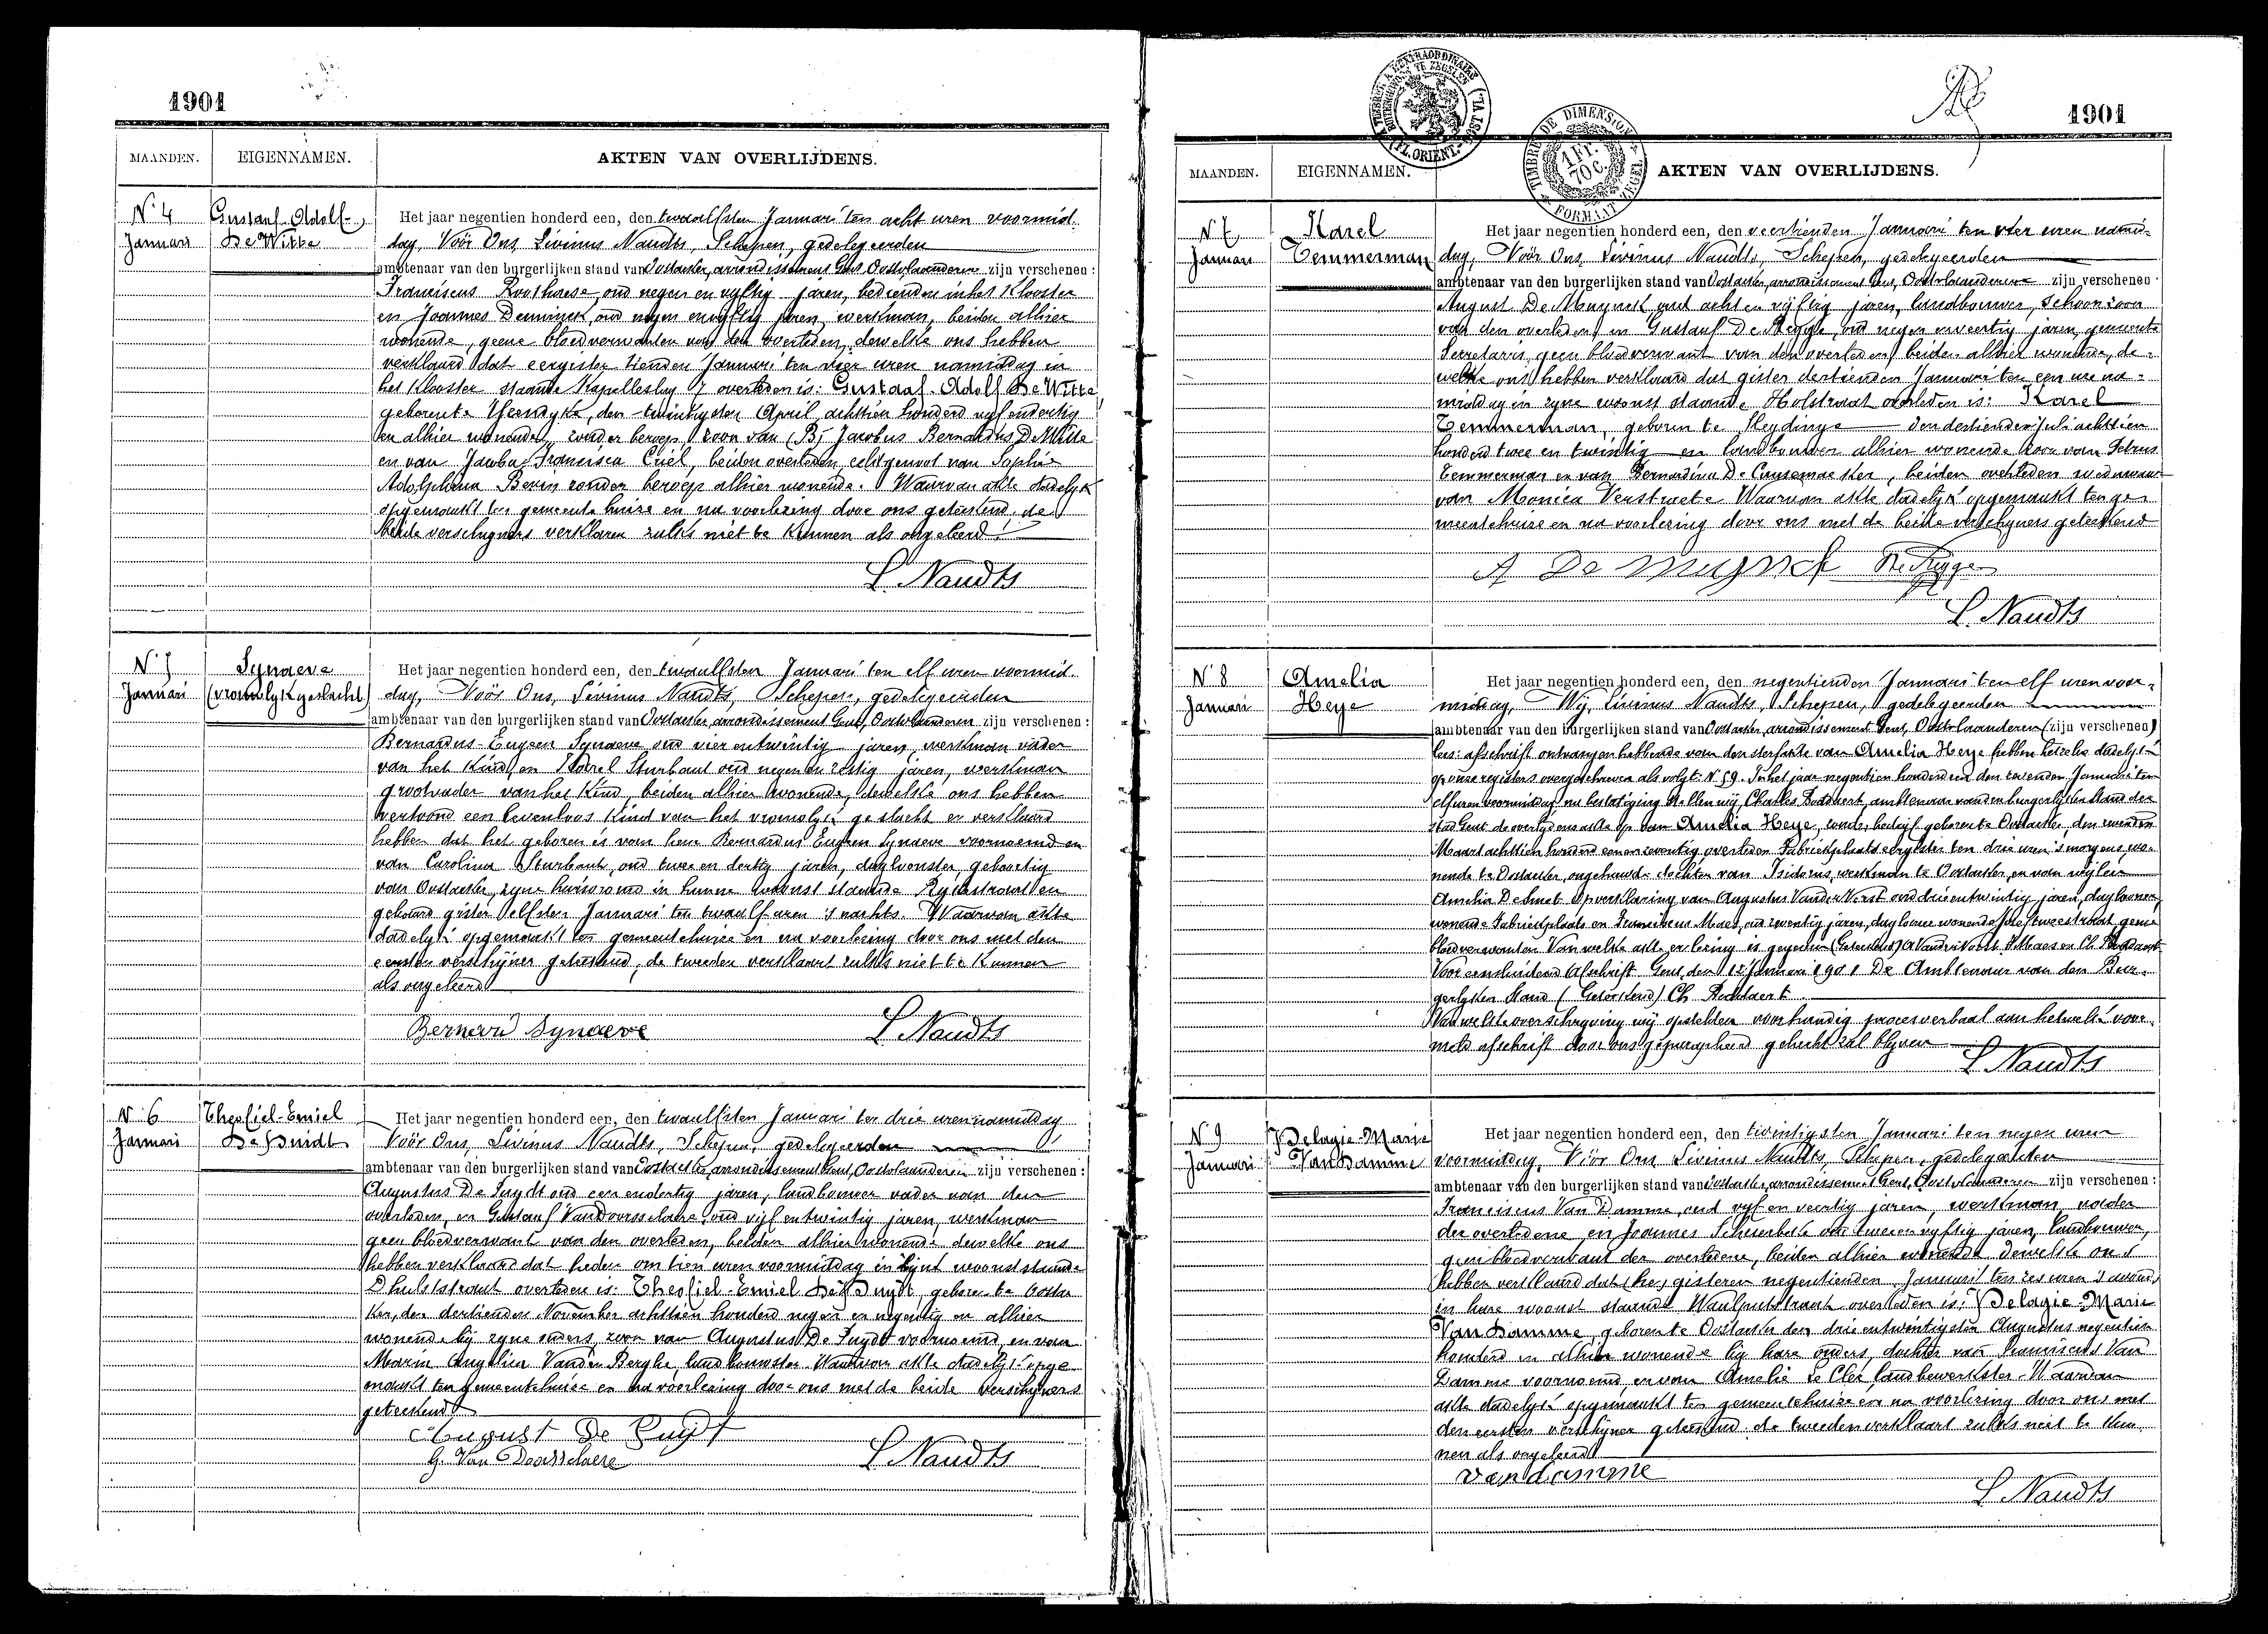 1901
MAANDEN. EIGENNAMEN. AKTEN VAN OVERLIJDENS.
N° 4 Gustaaf-Adolf
Januari De Witte
Het jaar negentien honderd een, den twaalfsten Januari ten acht uren voormid-
dag, Vóór Ons, Livinus Naudts, Schepen, gedelegeerden
ambtenaar van den burgerlijken stand van Oostacker, arrondissement Gent, Oostvlaanderen zijn verschenen :
Franciscus oud negen en vyftig jaren, bedienden in het Klooster
en Joannes oud negen en vyftig jaren, werkman, beiden alhier
wonende, geene bloedverwanten van den overleden, dewelke ons hebben
verklaard dat eergister tienden Januari ten vier uren namiddag in
het Klooster staande Kapelleslag 7 overleden is: Gustaaf-Adolf De Witte
geboren te den twintigsten April achttien honderd vyf en dertig
en alhier wonende, zonder beroep, zoon van (B) Jacobus Bernardus De Witte
en van Jacoba Francisca Criel, beiden overleden, echtgenoot van Sophie
Adolphina zonder beroep alhier wonende. Waarvan akte dadelyk
opgemaakt ten gemeente huize en na voorlezing door ons geteekend, de
beide verschijners verklaren zulks niet te kunnen als ongeleerd
L. Naudts
N° 5 Synaeve
Januari (vrouwelyk geslacht)
Het jaar negentien honderd een, den twaalfsten Januari ten elf uren voormid-
dag, Vóór Ons, Livinus Naudts, Schepen, gedelegeerden
ambtenaar van den burgerlijken stand van Oostacker, arrondissement Gent, Oostvlaanderen zijn verschenen :
Bernardus-Eugeen Synaeve oud vier en twintig jaren, werkman vader
van het Kind, en Karel Sturbaut oud negen en zestig jaren, werkman
grootvader van het Kind, beiden alhier wonende, dewelke ons hebben
vertoond een levenloos Kind van het vrouwelyk geslacht en verklaard
hebben dat het geboren is van hem Bernardus Eugeen Synaeve voornoemd en
van Carolina Sturbaut, oud twee en dertig jaren, dagloonster, geboortig
van Oostacker, zyne huisvrouw in hunne woonst staande Rynstraat en
gebaard gister elfsten Januari ten twaalf uren 's nachts. Waarvan akte
dadelyk opgemaakt ten gemeentehuize en na voorlezing door ons met den
eersten verschijner geteekend, de tweeden verklaart zulks niet te Kunnen
als ongeleerd
Bernard Synaeve L. Naudts
N° 6 Theofiel-Emiel
Januari De Suidt
Het jaar negentien honderd een, den twaalfsten Januari ten drie uren namiddag
Vóór Ons, Livinus Naudts, Schepen, gedelegeerden
ambtenaar van den burgerlijken stand van Oostacker, arrondissement Gent, Oostvlaanderen zijn verschenen :
Augustus De Suydt oud een en dertig jaren, landbouwer vader van den
overleden, en Gustaaf Vandoorsselaere oud vijf en twintig jaren, werkman
geen bloedverwant van den overleden, beiden alhier wonende dewelke ons
hebben verklaard dat heden om tien uren voormiddag in zijne woonst staande
Dhulststraat overleden is: Theofiel-Emiel De Suydt, geboren te Oostac-
ker, den dertienden November achttien honderd negen en negentig en alhier
wonende bij zyne ouders, zoon van Augustus De Suydt voornoemd, en van
Marie Angelina Vanden Berghe, landbouwster. Waarvan akte dadelyk opge-
maakt ten gemeentehuize en na voorlezing door ons met de beide verschyners
geteekend
August De Suyt
G. Van Doorsselaere L. Naudts
1901
TIMBRE EXTRAORDINAIRE
(FL. ORIENT.-OOST VL.)
TIMBRE DE DIMENSION
1 Fr. 70 C.
FORMAAT ZEGEL
MAANDEN. EIGENNAMEN. AKTEN VAN OVERLIJDENS.
N° 7 Karel
Januari Temmerman
Het jaar negentien honderd een, den veertienden Januari ten vier uren namid-
dag, Vóór Ons, Livinus Naudts, Schepen, gedelegeerden
ambtenaar van den burgerlijken stand van Oostacker, arrondissement Gent, Oostvlaanderen zijn verschenen :
August De Muynck, oud acht en vijftig jaren, landbouwer, schoonzoon
van den overleden, en Gustaaf De Regge, oud negen en veertig jaren, gemeente
Secretaris, geen bloedverwant van den overleden, beiden alhier wonende, de-
welke ons hebben verklaard dat gister dertienden Januari ten een ure na-
middag in zyne woonst staande Holstraat overleden is: Karel
Temmerman, geboren te Sleydinge den dertienden Juli achttien
honderd twee en twintig en landbouwer alhier wonende zoon van Petrus
Temmerman en van Bernardina De Causemaeker, beiden overleden weduwnaar
van Monica Verstraete. Waarvan akte dadelyk opgemaakt ten ge-
meentehuize en na voorlezing door ons met de beide verschyners geteekend
A De Muynck De Regge
L. Naudts
N° 8 Amelia
Januari Heye
Het jaar negentien honderd een, den negentienden Januari ten elf uren voor-
middag, Wij, Livinus Naudts, Schepen, gedelegeerden
ambtenaar van den burgerlijken stand van Oostacker, arrondissement Gent, Oostvlaanderen (zijn verschenen)
lees: afschrift ontvangen hebbende van den sterfakte van Amelia Heye hebben hetzelve dadelyk
op onze registers overgeschreven als volgt: N° 59. In het jaar negentien honderd een den tienden Januari ten
elf uren voormiddag na bestatiging stellen wij Charles ambtenaar van den burgerlyken stand der
stad Gent de overlydensakte op van Amelia Heye, zonder bedrijf geboren te Oostacker, den
Maart achttien honderd een en zeventig overleden Fabriekplaats eergister ten drie uren 's morgens, wo-
nende te Oostacker, ongehuwd, dochter van Isidorus, werkman te Oostacker, en van wijlen
Amelia Desmet. Op verklaring van Augustus Vander Vorst oud drie en twintig jaren, daglooner,
wonende Fabriekplaats en Maes, oud zeventig jaren, daglooner wonende geene
bloedverwanten. Van welke akte er lezing is gegeven (Geteekend) Maes en Ch.
Voor eensluidend Afschrift Gent, den 12 Januari 1901 De Ambtenaar van den Bur-
gerlyken Stand (Geteekend) Ch
Van welke overschryving wij opstelden voorhandig procesverbaal aan hetwelk voor-
meld afschrift door ons geparapheerd gehecht zal blyven
L. Naudts
N° 9 Pelagie-Marie
Januari Van Damme
Het jaar negentien honderd een, den twintigsten Januari ten negen uren
voormiddag, Vóór Ons Livinus Naudts, Schepen, gedelegeerden
ambtenaar van den burgerlijken stand van Oostacker, arrondissement Gent, Oostvlaanderen zijn verschenen :
Franciscus Van Damme, oud vyf en veertig jaren, werkman, vader
der overledene, en Joannes oud twee en vyftig jaren, landbouwer,
geen bloedverwant der overledene, beiden alhier wonende dewelke ons
hebben verklaard dat gisteren negentienden Januari ten zes uren 's avonds
in hare woonst staande Waalputstraat overleden is: Pelagie-Marie
Van Damme, geboren te Oostacker den drie en twintigsten Augustus negentien
honderd en alhier wonende by hare ouders, dochter van Franciscus Van
Damme voornoemd, en van Amelie De Clee landbewerkster. Waarvan
akte dadelyk opgemaakt ten gemeentehuize en na voorlezing door ons met
den eersten verschijner geteekend, de tweeden verklaart zulks niet te kun-
nen als ongeleerd
van damme
L. Naudts